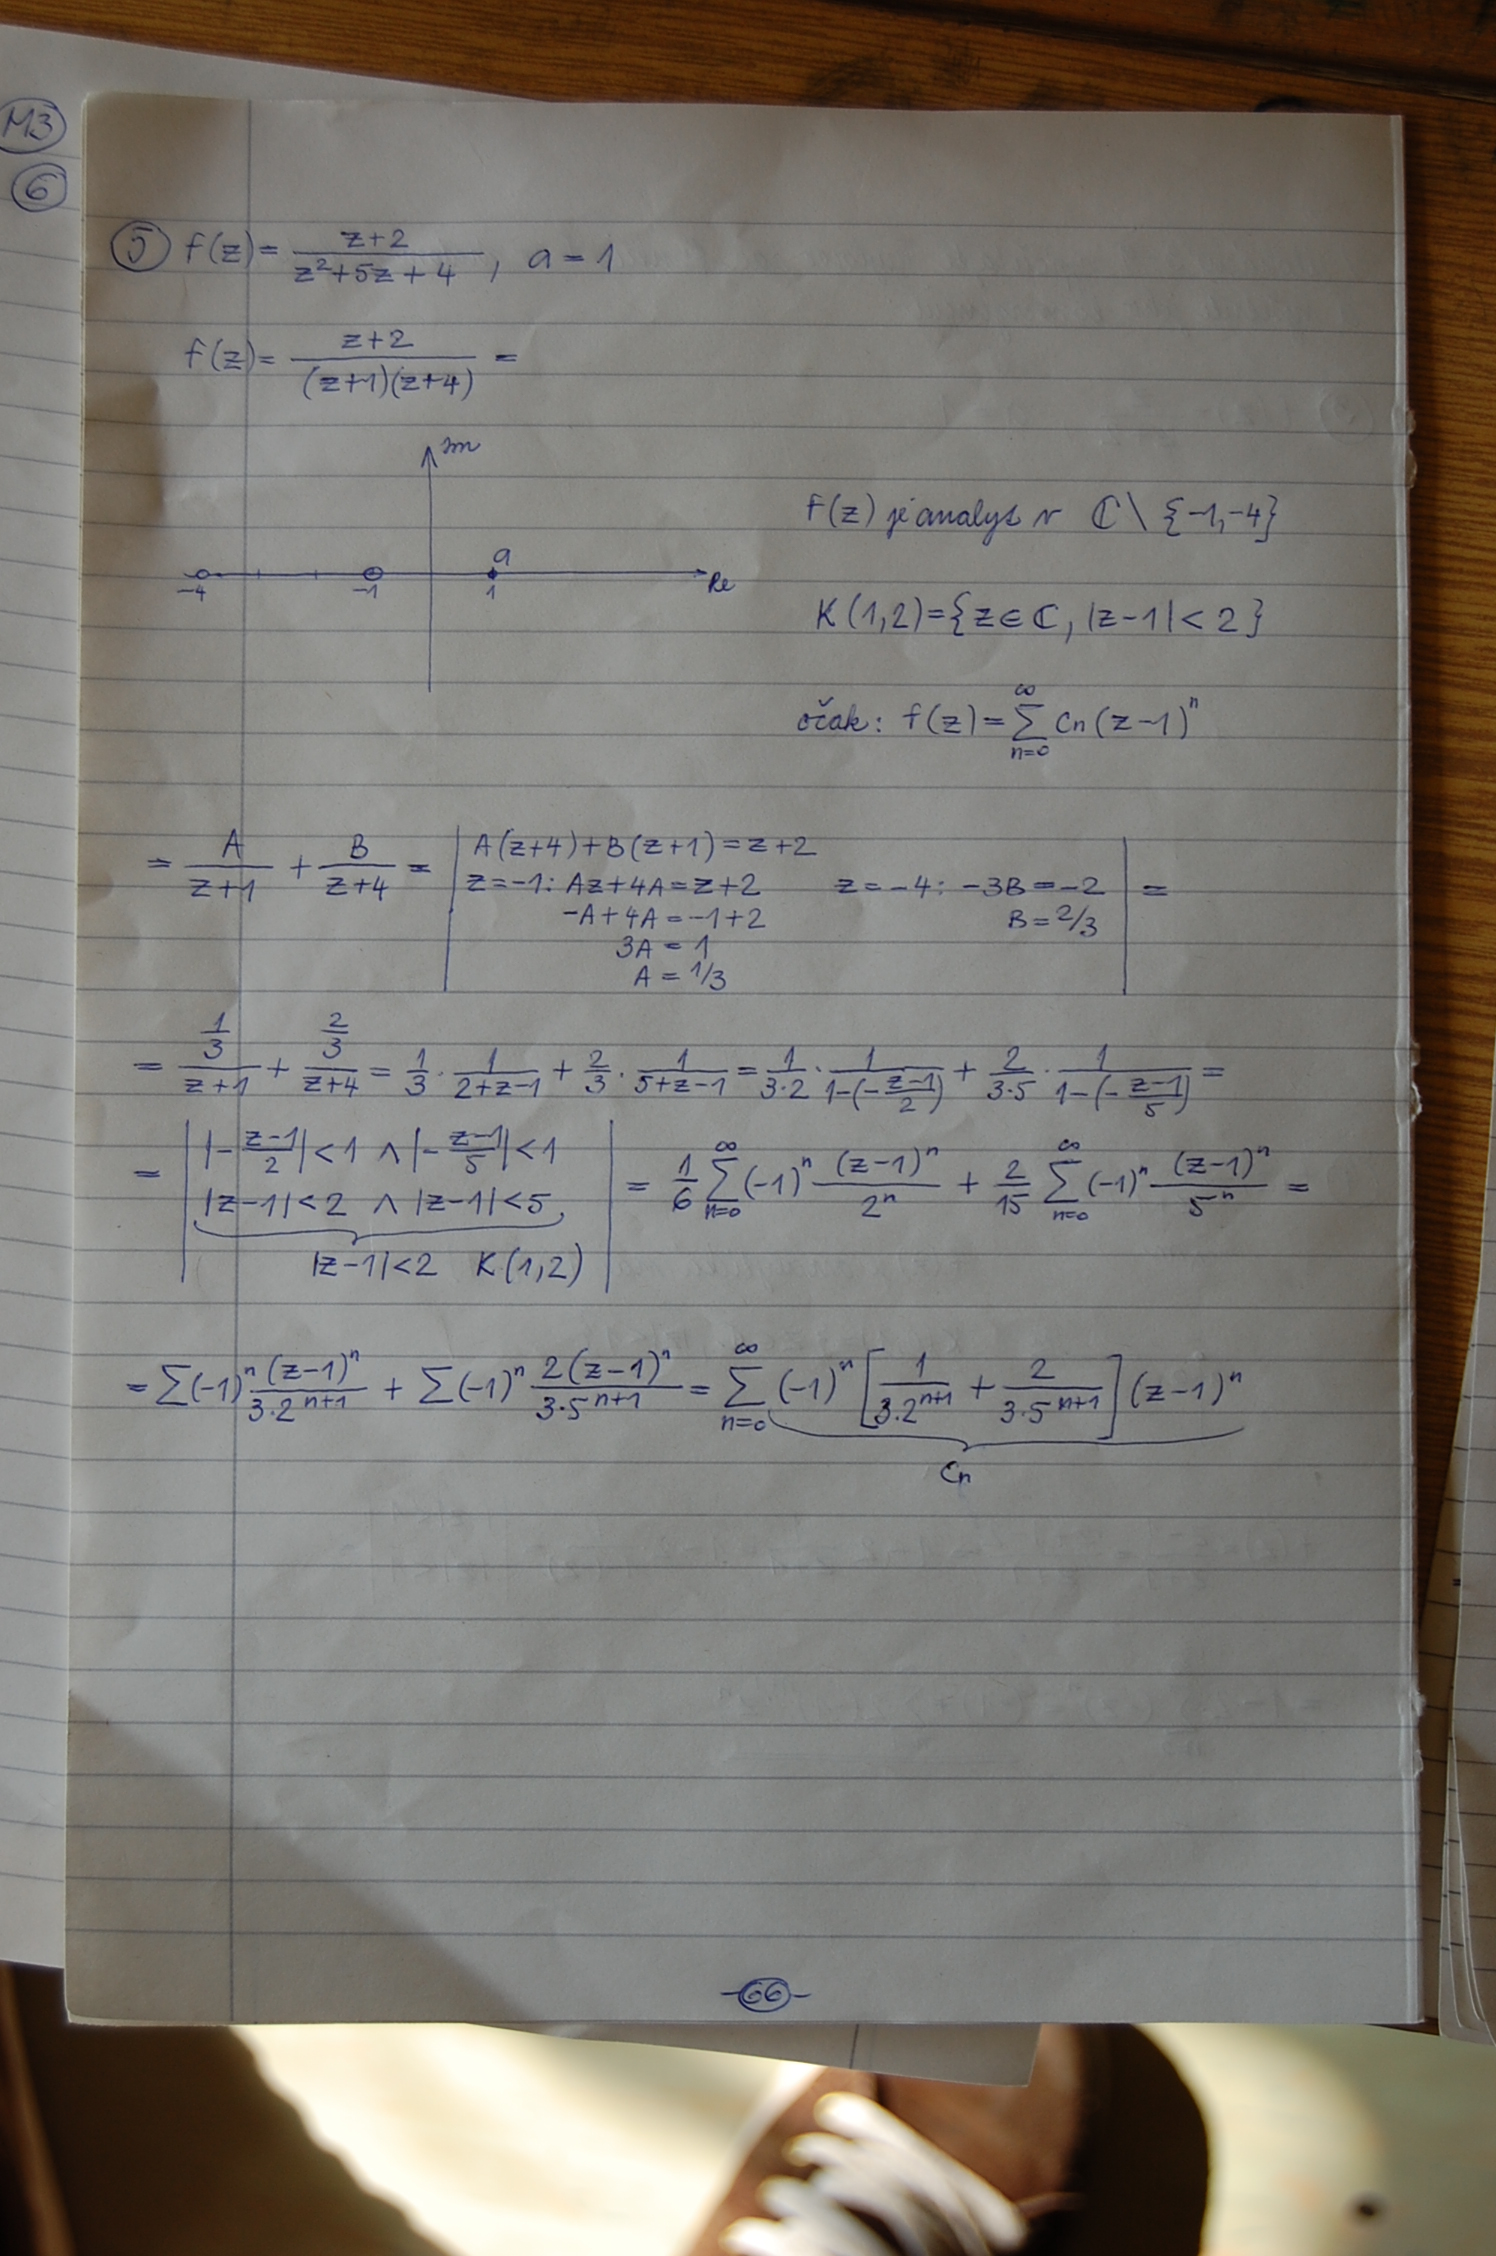 M3
6
5 f(z) = \frac{z+2}{z^2+5z+4}, a = 1
f(z) = \frac{z+2}{(z+1)(z+4)} =
Im
a
-4 -1 1 Re
f(z) je analyt v ℂ \ {-1, -4}
K(1,2) = {z ∈ ℂ, |z-1| < 2}
očak: f(z) = \sum_{n=0}^{∞} c_n (z-1)^n
= \frac{A}{z+1} + \frac{B}{z+4} = | A(z+4) + B(z+1) = z+2
z=-1: Az+4A = z+2 z=-4: -3B = -2 | =
-A+4A = -1+2 B = 2/3
3A = 1
A = 1/3
= \frac{\frac{1}{3}}{z+1} + \frac{\frac{2}{3}}{z+4} = \frac{1}{3} · \frac{1}{2+z-1} + \frac{2}{3} · \frac{1}{5+z-1} = \frac{1}{3·2} · \frac{1}{1-(-\frac{z-1}{2})} + \frac{2}{3·5} · \frac{1}{1-(-\frac{z-1}{5})} =
= | |-\frac{z-1}{2}| < 1 ∧ |-\frac{z-1}{5}| < 1
|z-1| < 2 ∧ |z-1| < 5
|z-1| < 2 K(1,2) | = \frac{1}{6} \sum_{n=0}^{∞} (-1)^n \frac{(z-1)^n}{2^n} + \frac{2}{15} \sum_{n=0}^{∞} (-1)^n \frac{(z-1)^n}{5^n} =
= \sum (-1)^n \frac{(z-1)^n}{3·2^{n+1}} + \sum (-1)^n \frac{2(z-1)^n}{3·5^{n+1}} = \sum_{n=0}^{∞} (-1)^n [\frac{1}{3·2^{n+1}} + \frac{2}{3·5^{n+1}}] (z-1)^n
c_n
-66-